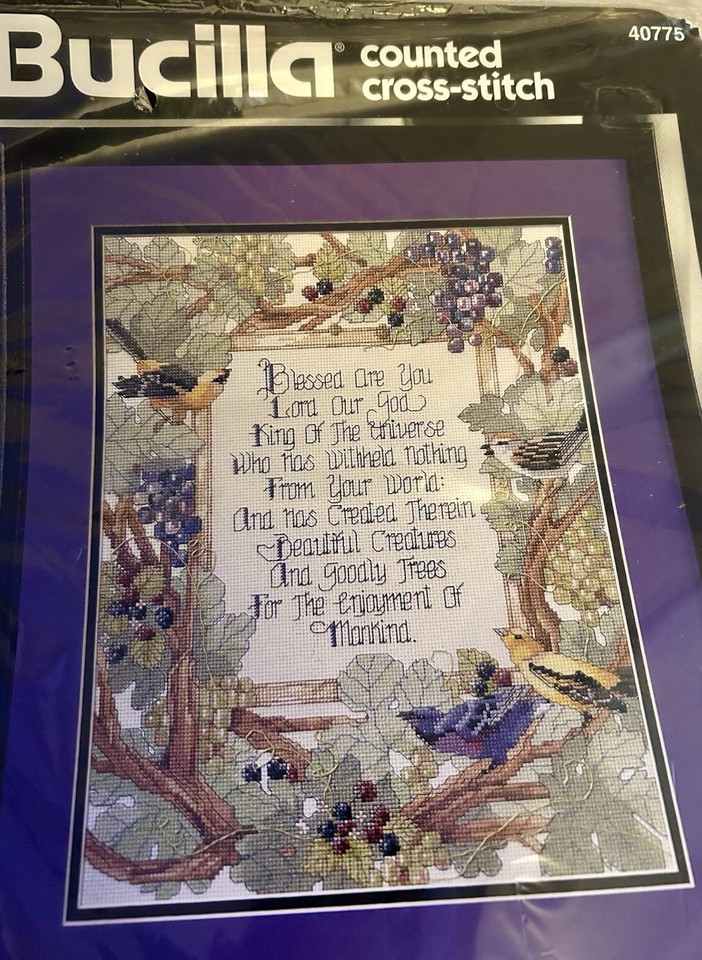 40775
Bucilla® counted
cross-stitch
Blessed Are You
Lord Our God
King Of The Universe
Who Has Withheld Nothing
From Your World:
And Has Created Therein
Beautiful Creatures
And Goodly Trees
For The Enjoyment Of
Mankind.